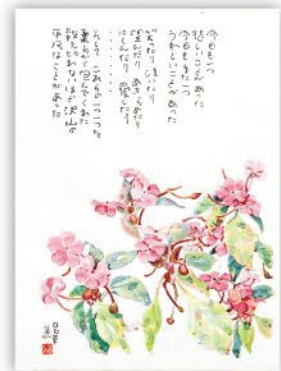 今日も一つ
悲しいことがあった
今日もまた一つ
うれしいことがあった
笑ったり 泣いたり
望んだり あきらめたり
にくんだり 愛したり
・・・・・・・
そして これらの一つ一つを
柔らかく包んでくれた
数えきれないほど沢山の
平凡なことがあった
日日草